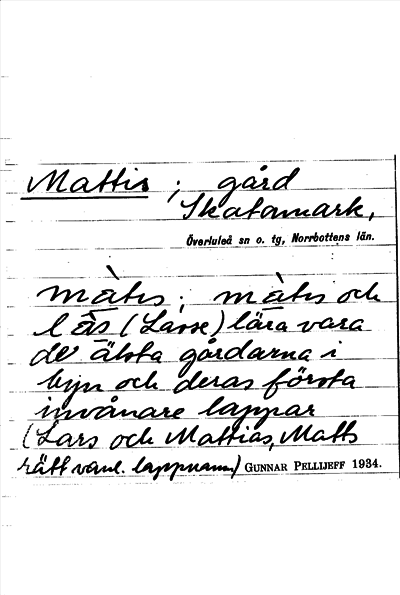 Mattis ; gård
Skatamark,
Överluleå sn o. tg, Norrbottens län.
màtɩs ; màtɩs och
lås (Lasse) lära vara
de älsta gårdarna i
byn och deras första
invånare lappar
(Lars och Mattias, Matts
rätt vanl. lappnamn) GUNNAR PELLIJEFF 1934.